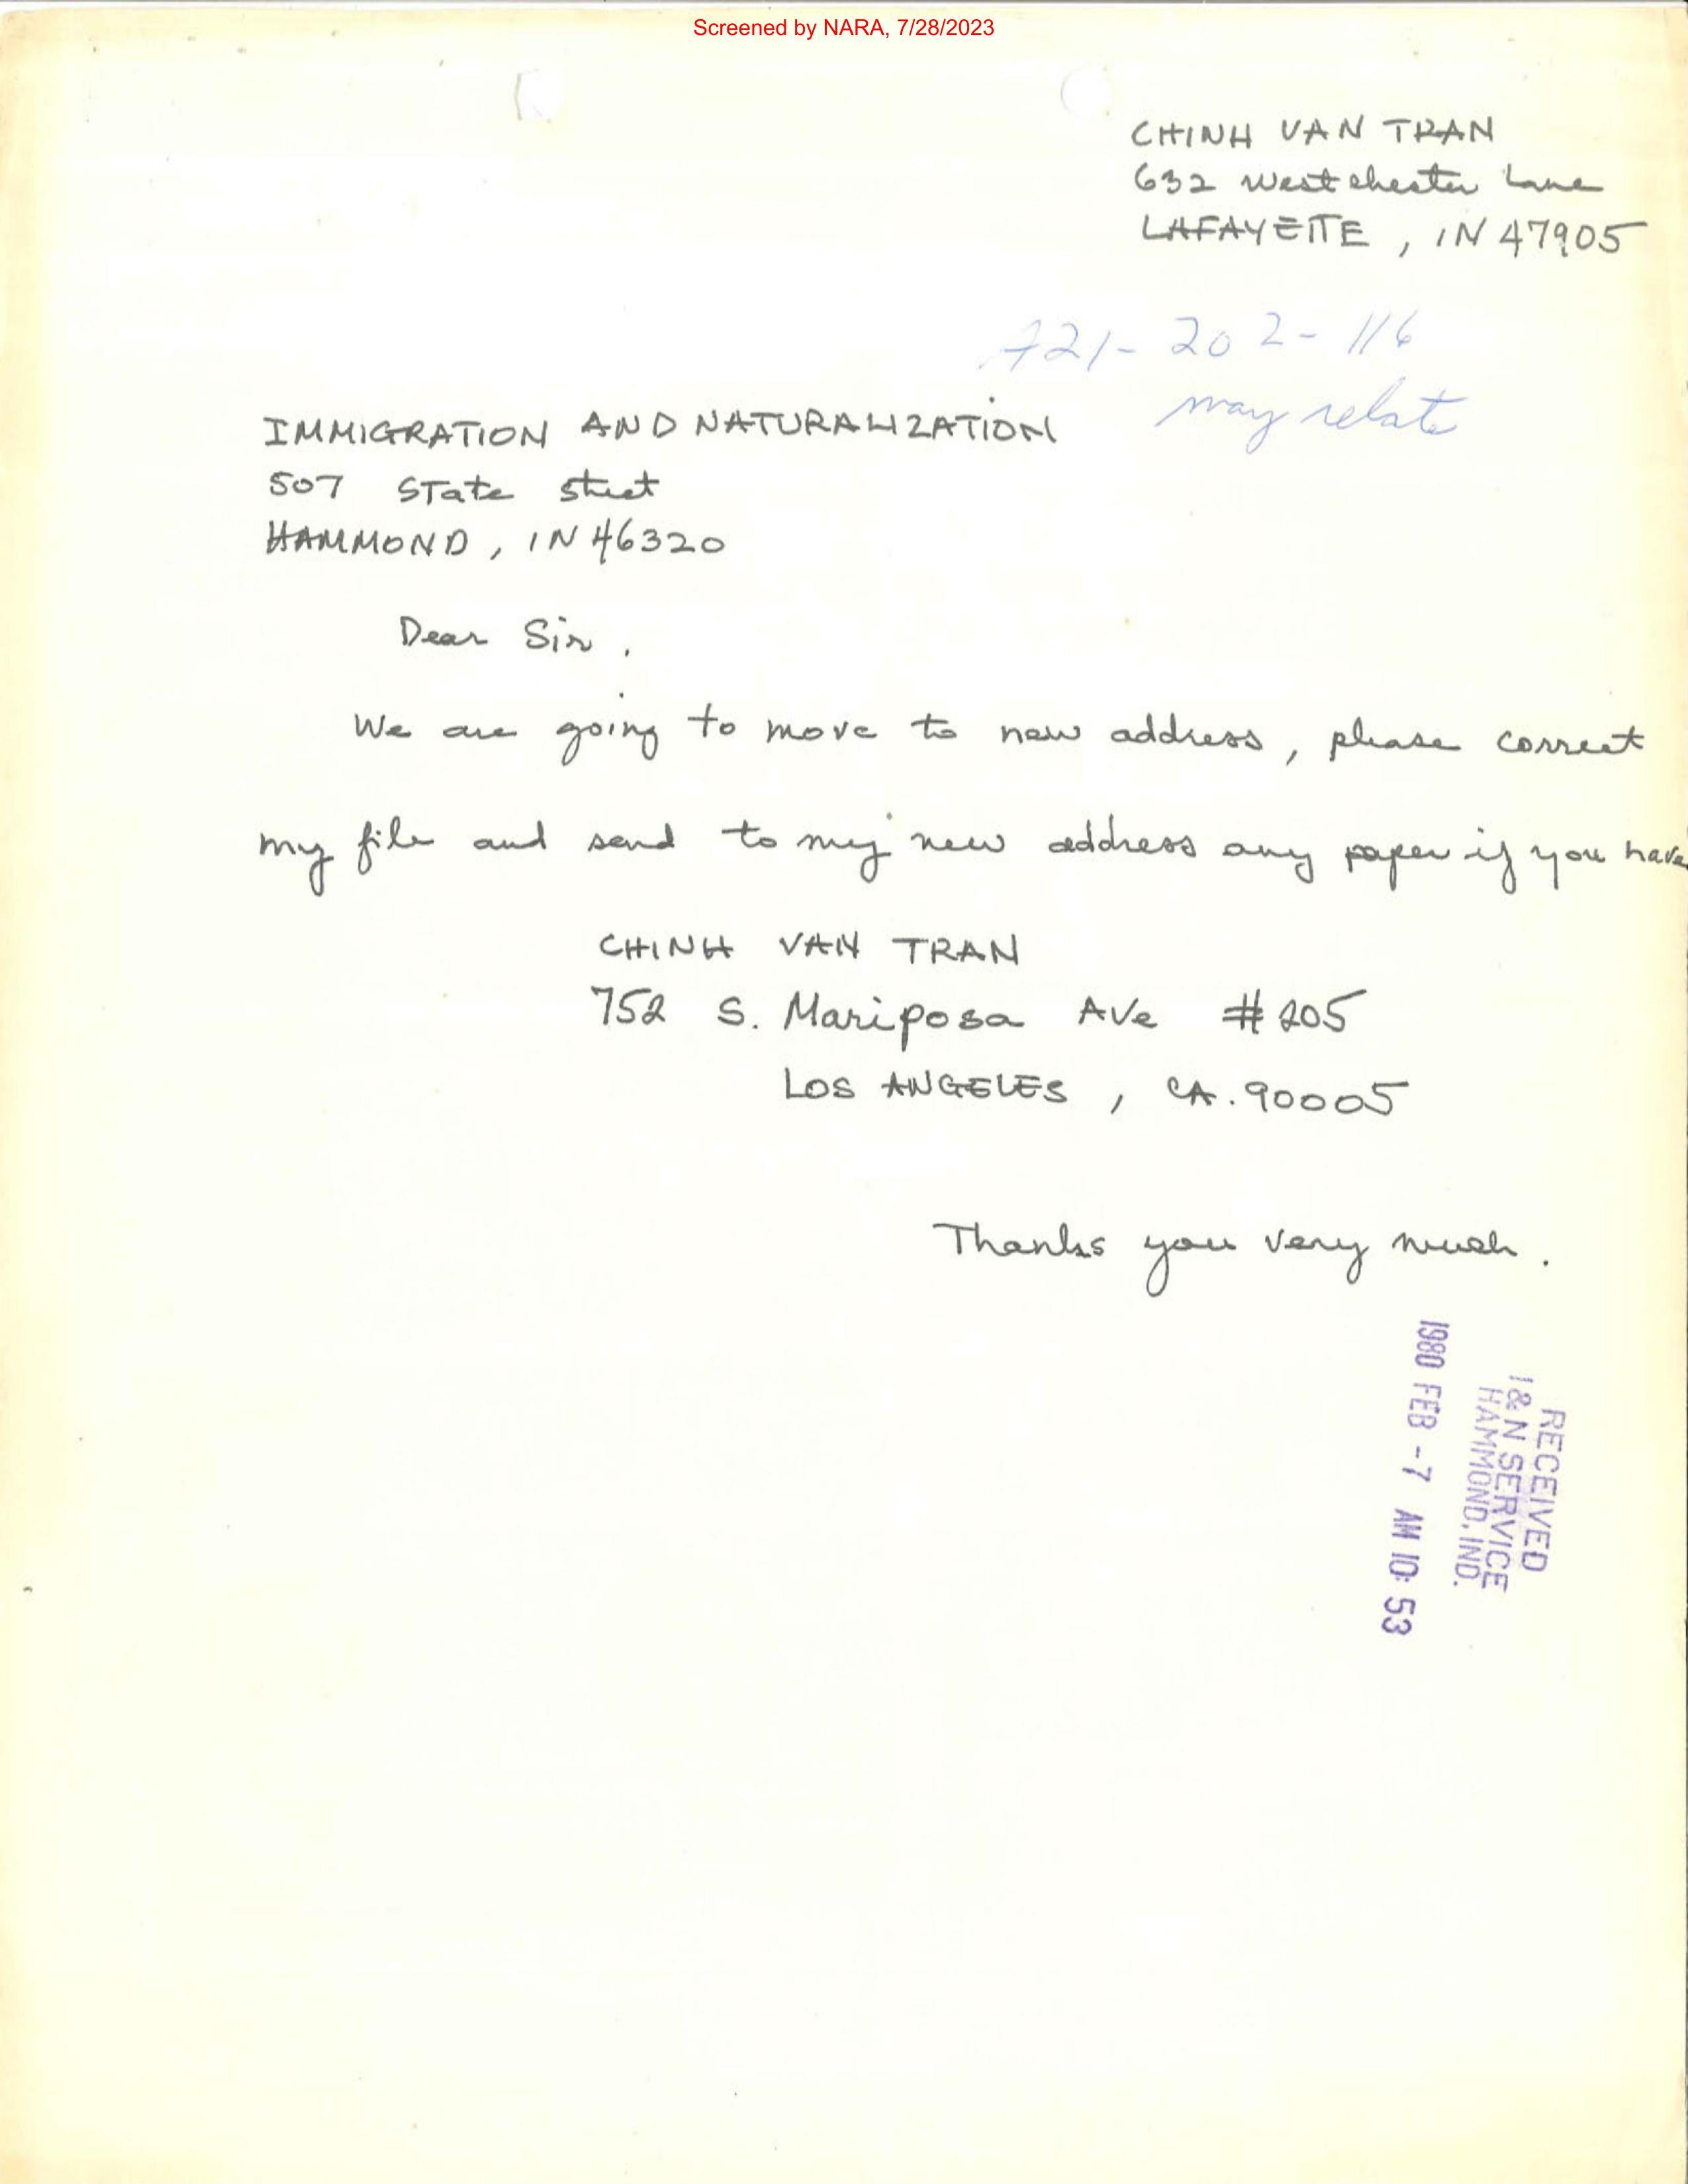 Screened by NARA, 7/28/2023
CHINH VAN TRAN
632 Westchester Lane
LAFAYETTE, IN 47905
A21-202-116
may relate
IMMIGRATION AND NATURALIZATION
507 State street
HAMMOND, IN 46320
Dear Sir,
We are going to move to new address, please correct
my file and send to my new address any paper if you have
CHINH VAN TRAN
752 S. Mariposa Ave #205
LOS ANGELES, CA. 90005
Thanks you very much.
RECEIVED
I & N SERVICE
HAMMOND, IND.
1980 FEB -7 AM 10 53